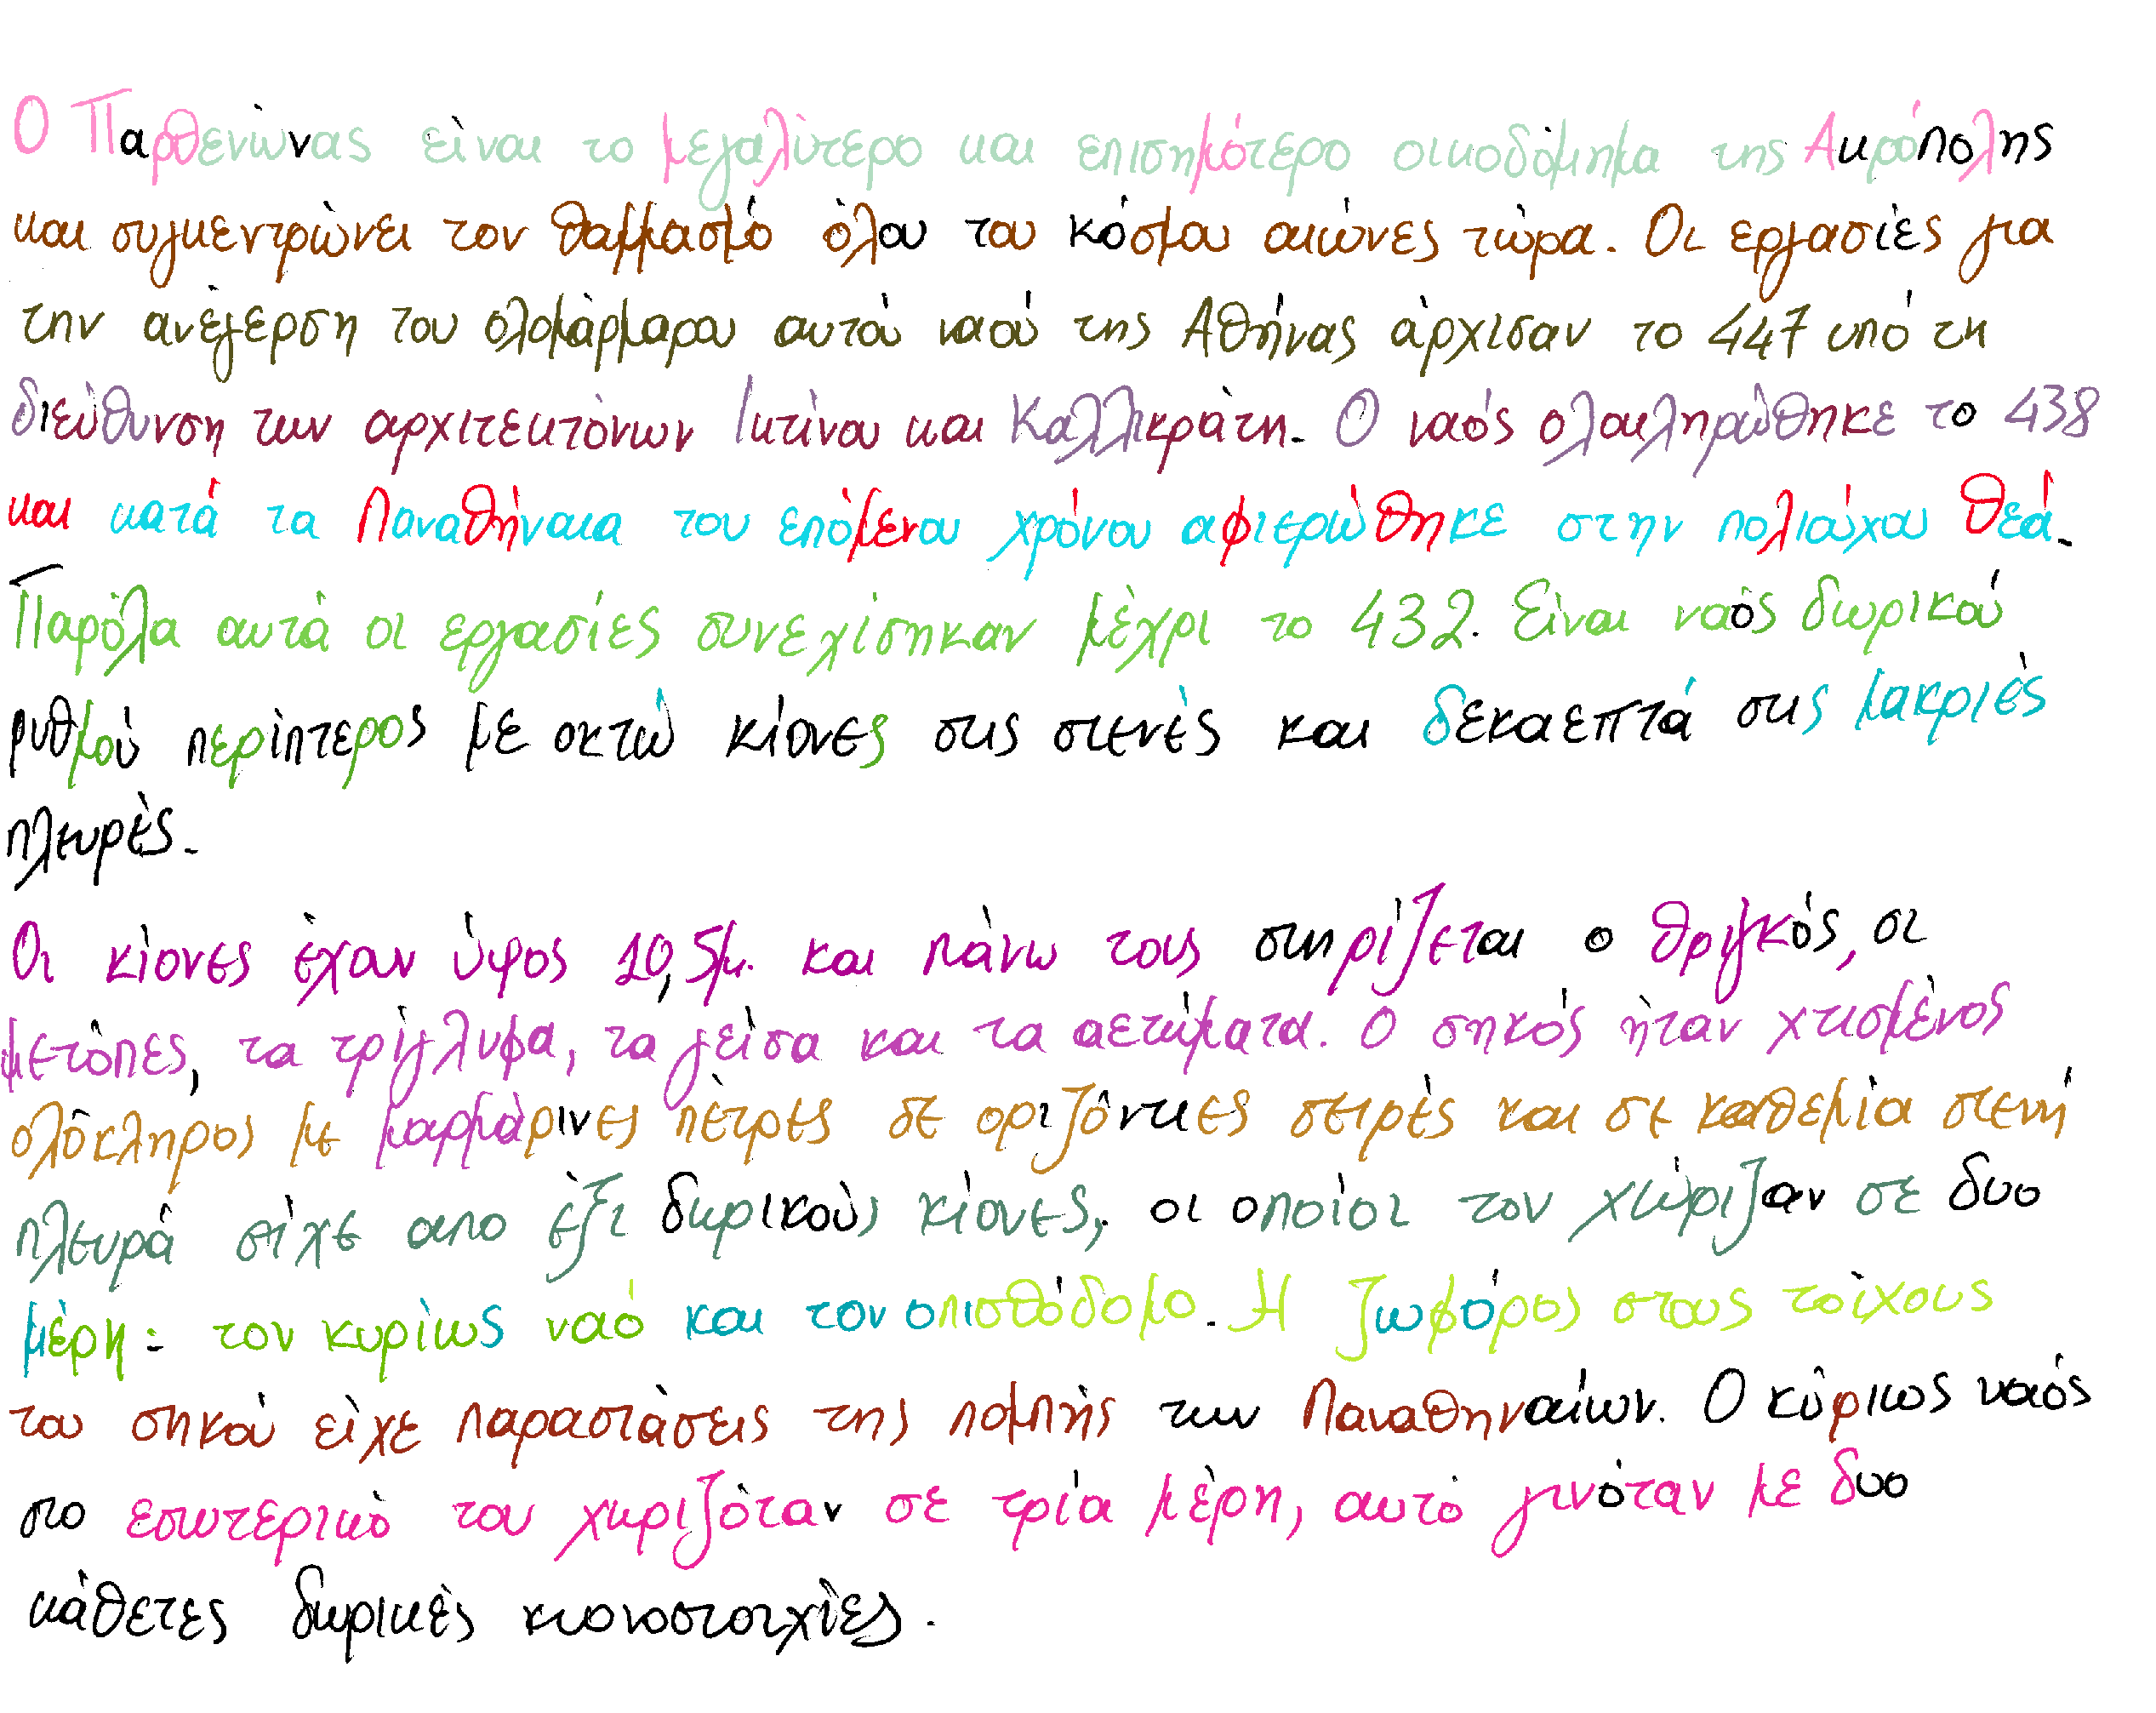 Ο Παρθενώνας είναι το μεγαλύτερο και επισημότερο οικοδόμημα της Ακρόπολης
και συγκεντρώνει τον θαμμασμό όλου του κόσμου αιώνες τώρα. Οι εργασίες για
την ανέγερση του ολομάρμαρου αυτού ναού της Αθήνας άρχισαν το 447 υπό τη
διεύθυνση των αρχιτεκτόνων Ικτίνου και Καλλικράτη. Ο ναός ολοκληρώθηκε το 438
και κατά τα Παναθήναια του επόμενου χρόνου αφιερώθηκε στην πολιούχου θεά.
Παρόλα αυτά οι εργασίες συνεχίσηκαν μέχρι το 432. Είναι ναός δωρικού
ρυθμού περίπτερος με οκτώ κίονες στις στενές και δεκαεπτά στις μακριές
πλευρές.
Οι κίονες έχουν ύψος 10,5μ. και πάνω τους στηρίζεται ο θριγκός, οι
μετόπες, τα τρίγλυφα, τα γείσα και τα αετώματα. Ο σηκός ήταν χτισμένος
ολόκληρος με μαρμάρινες πέτρες σε οριζόντιες σειρές και σε καθεμία στενή
πλευρά είχε απο έξι δωρικούς κίονες, οι οποίοι τον χώριζαν σε δυο
μέρη: τον κυρίως ναό και τον οπισθόδομο. Η ζωφόρος στους τοίχους
του σηκού είχε παραστάσεις της πομπής των Παναθηναίων. Ο κύριως ναός
στο εσωτερικό του χωριζόταν σε τρία μέρη, αυτό γινόταν με δυο
κάθετες δωρικές κιονοστοιχίες.